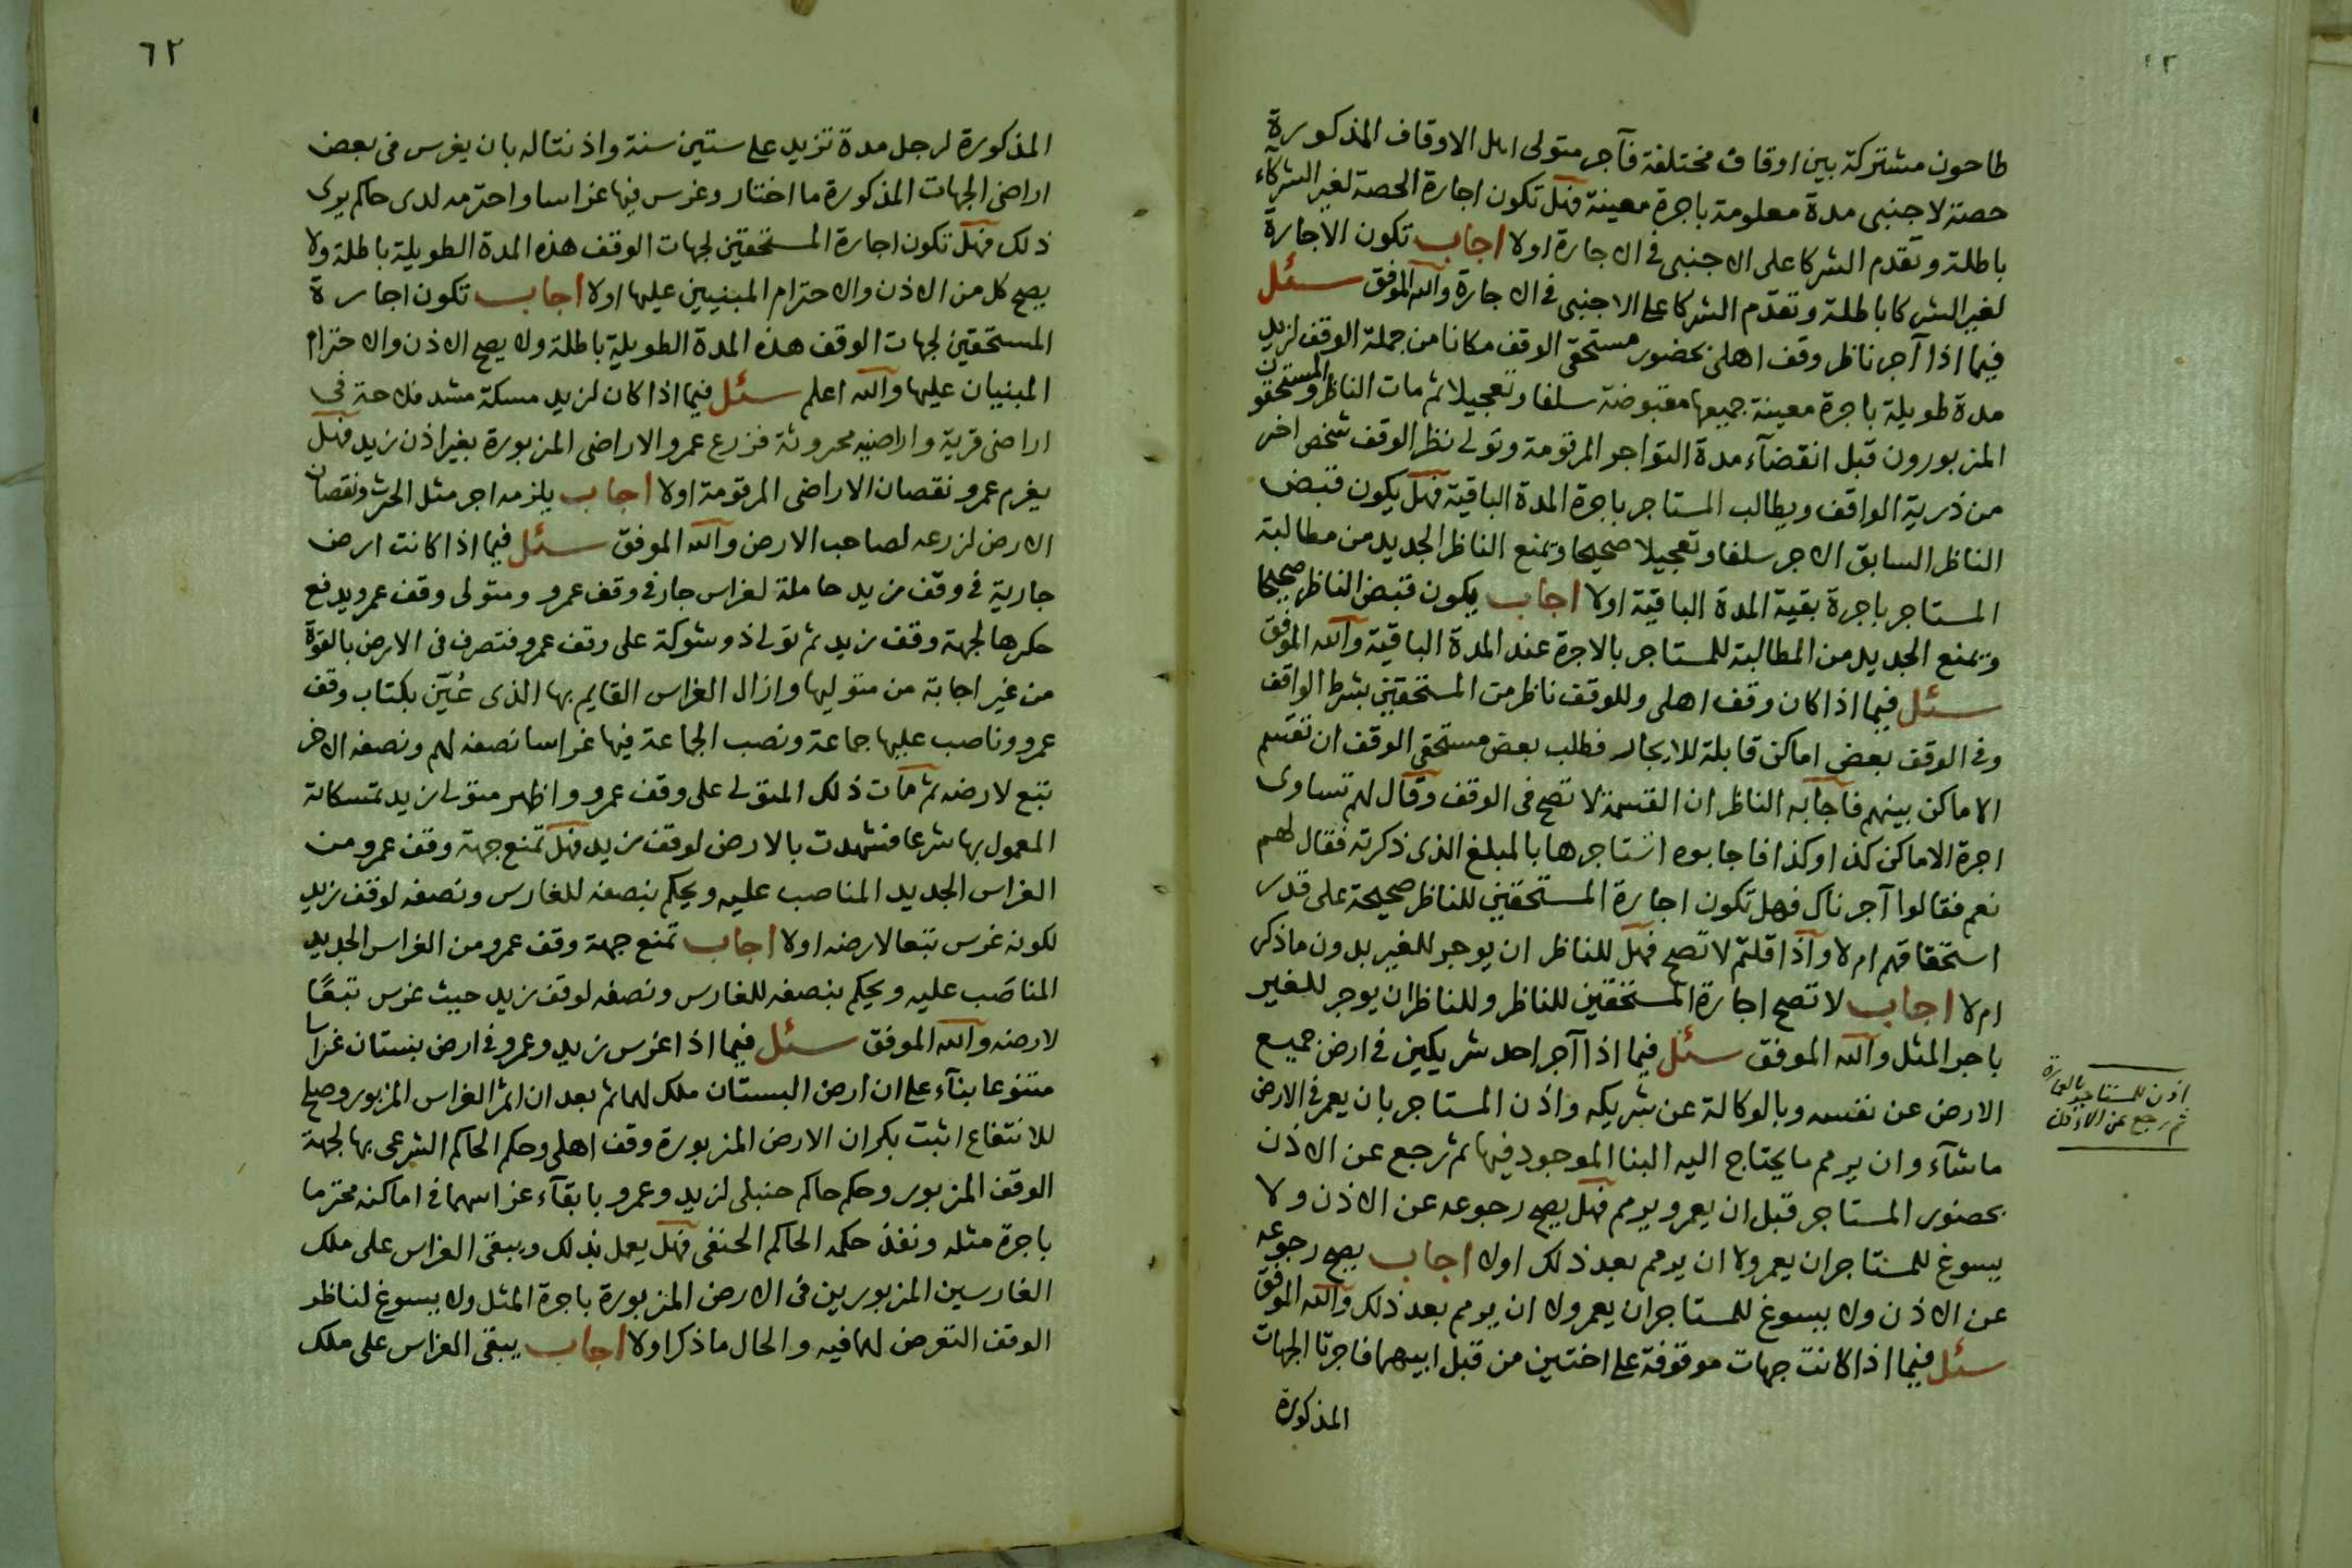 طاحون مشتركة بين اوقاف مختلفة فآجر متولى احل الاوقاف المذكورة
حصة لاجنبى مدة معلومة باجرة معينة فهل تكون اجارة الحصة لغير الشركآء
باطلة وتقدم الشركا على الاجنبى فى الاجارة اولا اجاب تكون الاجارة
لغير الشركا باطلة وتقدم الشركا على الاجنبى فى الاجارة والله الموفق سئل
فيما اذا آجر ناظر وقف اهلى بحضور مستحقى الوقف مكانا من جملة الوقف لزيد
مدة طويلة باجرة معينة جميعها مقبوضة سلفا وتعجيلا ثم مات الناظر والمستحقون
المزبورون قبل انقضآء مدة التواجر المرقومة وتولى نظر الوقف شخص اخر
من ذرية الواقف ويطالب المستاجر باجرة المدة الباقية فهل يكون قبض
الناظر السابق الاجر سلفا وتعجيلا صحيحا ويمنع الناظر الجديد من مطالبة
المستاجر باجرة بقية المدة الباقية اولا اجاب يكون قبض الناظر صحيحا
ويمنع الجديد من المطالبة للمستاجر بالاجرة عند المدة الباقية والله الموفق
سئل فيما اذا كان وقف اهلى وللوقف ناظر من المستحقين بشرط الواقف
وفى الوقف بعض اماكن قابلة للايجار فطلب بعض مستحقى الوقف ان تقسم
الاماكن بينهم فاجابه الناظر ان القسمة لا تصح فى الوقف وقال لهم تساوى
اجرة الاماكن كذا وكذا فاجابوه استاجرها بالمبلغ الذى ذكرته فقال لهم
نعم فقالوا آجرناك فهل تكون اجارة المستحقين للناظر صحيحة على قدر
استحقاقهم ام لا واذا قلتم لا تصح فهل للناظر ان يوجر للغير بدون ما ذكر
ام لا اجاب لا تصح اجارة المستحقين للناظر وللناظر ان يوجر للغير
باجر المثل والله الموفق سئل فيما اذا آجر احد شريكين فى ارض جميع
الارض عن نفسه وبالوكالة عن شريكه واذن المستاجر بان يعمر فى الارض
ما شآء وان يرمم ما يحتاج اليه البنا الموجود فيها ثم رجع عن الاذن
بحضور المستاجر قبل ان يعمر ويرمم فهل يصح رجوعه عن الاذن ولا
يسوغ للمستاجر ان يعمر ولا ان يرمم بعد ذلك اولا اجاب يصح رجوعه
عن الاذن ولا يسوغ للمستاجر ان يعمر ولا ان يرمم بعد ذلك والله الموفق
سئل فيما اذا كانت جهات موقوفة على اختين من قبل ابيهما فاجرتا الجهات
المذكورة
اذن للمستاجر بالعمارة
ثم رجع عن الاذن
٦٢
المذكورة لرجل مدة تزيد على ستين سنة واذنتا له بان يغرس فى بعض
اراضى الجهات المذكورة ما اختار وغرس فيها غراسا واحترمه لدى حاكم يرى
ذلك فهل تكون اجارة المستحقين لجهات الوقف هذه المدة الطويلة باطلة ولا
يصح كل من الاذن والاحترام المبنيين عليها اولا اجاب تكون اجارة
المستحقين لجهات الوقف هذه المدة الطويلة باطلة ولا يصح الاذن والاحترام
المبنيان عليها والله اعلم سئل فيما اذا كان لزيد مسكة مشد فلاحة فى
اراضى قرية واراضيه محروثة فزرع عمرو الاراضى المزبورة بغير اذن زيد فهل
يغرم عمرو نقصان الاراضى المرقومة اولا اجاب يلزمه اجر مثل الحرث ونقصان
الارض لزرعه لصاحب الارض والله الموفق سئل فيما اذا كانت ارض
جارية فى وقف زيد حاملة لغراس جار فى وقف عمرو ومتولى وقف عمرو يدفع
حكرها لجهة وقف زيد ثم تولى ذو شوكة على وقف عمرو فتصرف فى الارض بالقوة
من غير اجابة من متوليها وازال الغراس القايم بها الذى عُيّن بكتاب وقف
عمرو وناصب عليها جماعة ونصب الجماعة فيها غراسا نصفه لهم ونصفه الاخر
تبع لارضه ثم مات ذلك المتولى على وقف عمرو واظهر متولى زيد تمسكاته
المعمول بها شرعا فشهدت بالارض لوقف زيد فهل تمنع جهة وقف عمرو من
الغراس الجديد المناصب عليه ويحكم بنصفه للغارس ونصفه لوقف زيد
لكونه غرس تبعا لارضه اولا اجاب تمنع جهة وقف عمرو من الغراس الجديد
المناصَب عليه ويحكم بنصفه للغارس ونصفه لوقف زيد حيث غرس تبعًا
لارضه والله الموفق سئل فيما اذا غرس زيد وعمرو فى ارض بستان غراسا
متنوعا بنآء على ان ارض البستان ملك لهما ثم بعد ان اثمر الغراس المزبور وصلح
للانتفاع اثبت بكر ان الارض المزبورة وقف اهلى وحكم الحاكم الشرعى بها لجهة
الوقف المزبور وحكم حاكم حنبلى لزيد وعمرو بابقآء غراسهما فى اماكنه محترما
باجرة مثله ونفذ حكمه الحاكم الحنفى فهل يعمل بذلك ويبقى الغراس على ملك
الغارسين المزبورين فى الارض المزبورة باجرة المثل ولا يسوغ لناظر
الوقف التعرض لهما فيه والحال ما ذكر اولا اجاب يبقى الغراس على ملك